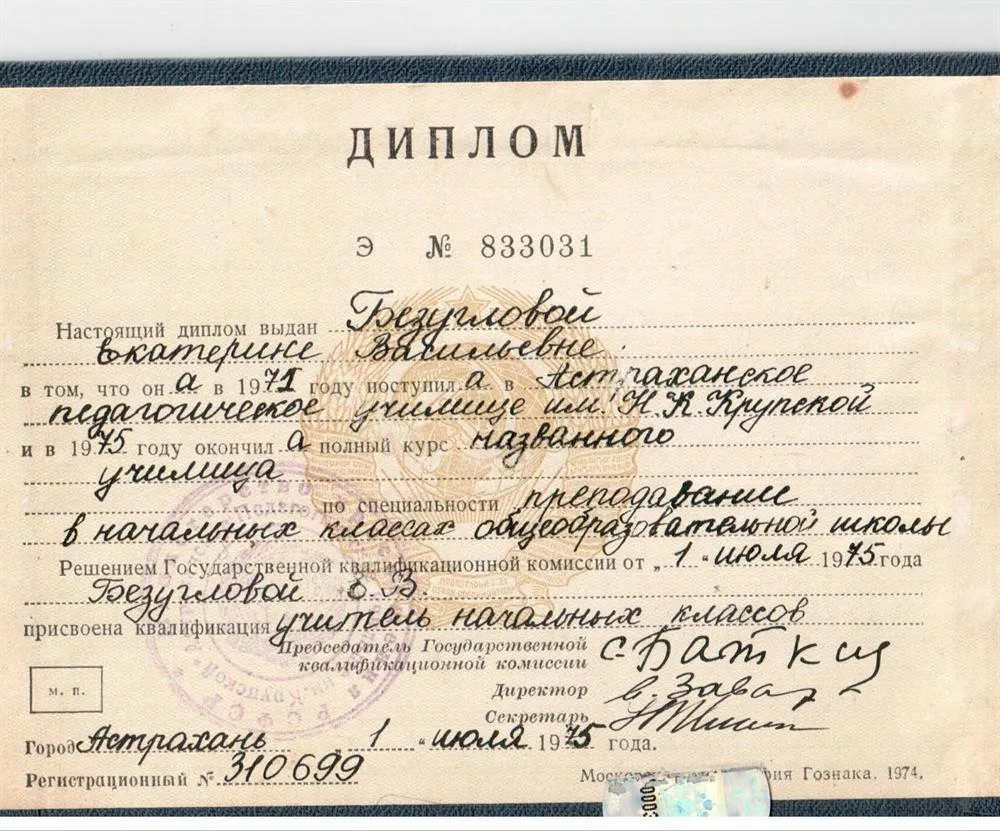 ДИПЛОМ
Э № 833031
Настоящий диплом выдан Безугловой
Екатерине Васильевне
в том, что он а в 1971 году поступил а в Астраханское
педагогическое училище им. Н К Крупской
и в 1975 году окончил а полный курс названного
училища
по специальности преподавание
в начальных классах общеобразовательной школы
Решением Государственной квалификационной комиссии от „1" июля 1975 года
Безугловой Е.В.
присвоена квалификация учитель начальных классов
Председатель Государственной
квалификационной комиссии
Директор
Секретарь
м. п.
Город Астрахань „1" июля 1975 года.
Регистрационный № 310699
Гознака. 1974.
РСФСР